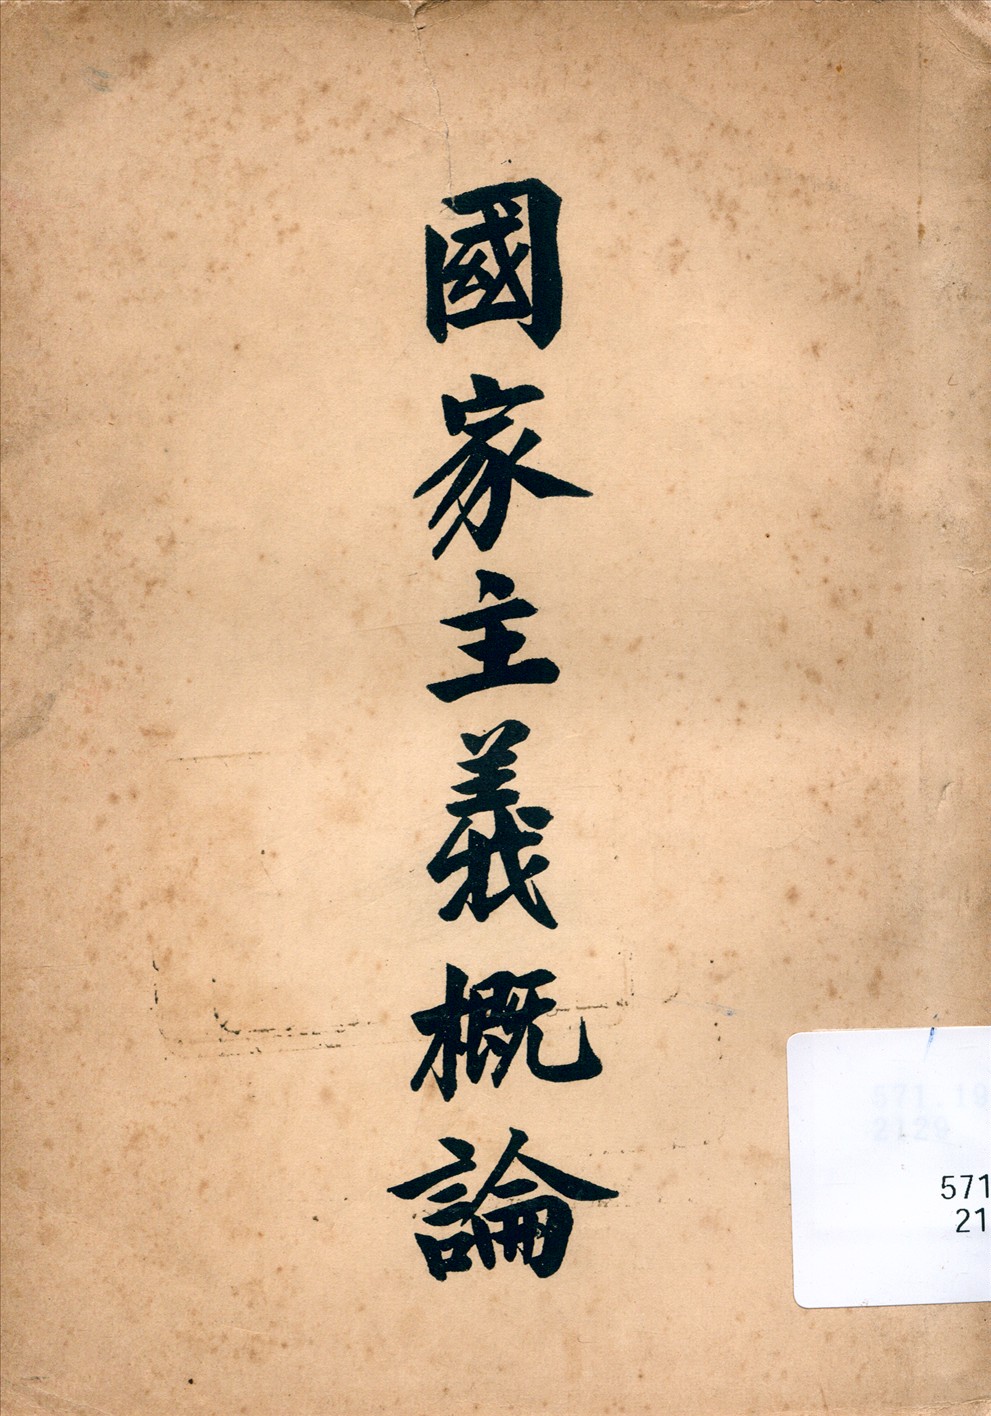 國家主義概論
571.19
2129
571
21